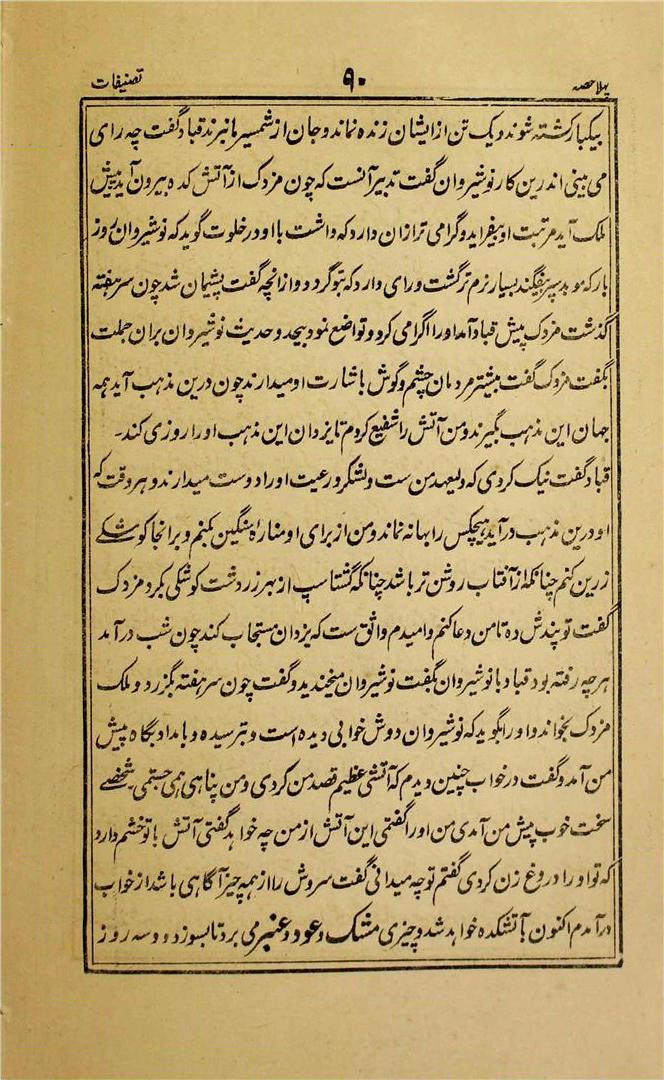 پہلا حصہ
۹۰
تصنیفات
بیکبار کشتہ شوند و یک تن از ایشان زندہ نماند و جان از شمسیر ما نبرند قباد گفت چہ رای
می بینی اندرین کار نوشیروان گفت تدبیر آنست کہ چون مزدک از آتش کدہ بیرون آید و پیش
ملک آید مرتبت او بیفزاید و گرامی تر ازان دارد کہ داشت با او در خلوت گوید کہ نوشیروان ہر روز
باز کہ موبد سپر بیفگند بسیار نرم تر گشت و رای دارد کہ بتو گردد و از انچہ گفت پشیمان شد چون سر ہفتہ
گذشت مزدک پیش قباد آمد او را اگرامی کرد و تواضع نمود بیحد و حدیث نوشیروان بران جملت
بگفت مزدک گفت بیشتر مردمان چشم و گوش باشارت او میدارند چون درین مذہب آید ہمہ
جہان این مذہب بگیرند و من آتش را شفیع کردم تا یزدان این مذہب او را روزی کند۔
قباد گفت نیک کردی کہ ولیعہد من ست و لشکر و رعیت او را دوست میدارند و ہر وقت کہ
او درین مذہب درآید ہیچکس را بہانہ نماند و من از برای او منارہ سنگین بکنم و بر انجا کوشکے
زرین کنم چنانکہ از آفتاب روشن تر باشد چنانکہ گشتاسپ از بہر زردشت کوشکی بکرد مزدک
گفت تو پندش دہ تا من دعا کنم و امیدم واثق ست کہ یزدان مستجاب کند چون شب درآمد
ہر چہ رفتہ بود قباد با نوشیروان بگفت نوشیروان بخندید و گفت چون سر ہفتہ بگزرد و ملک
مزدک بخواند و او را بگوید کہ نوشیروان دوش خوابی دیدہ است و بترسیدہ و بامداد پگاہ پیش
من آمد و گفت در خواب چنین دیدم کہ آتشی عظیم قصد من کردی و من پناہی ہمی جستمی۔ شخصے
سخت خوب پیش من آمدی من او را گفتمی این آتش از من چہ خواہد گفتی آتش با تو خشم دارد
کہ تو او را دروغ زن کردی گفتم تو چہ میدانی گفت سروش را از ہمہ چیز آگاہی باشد از خواب
درآمدم اکنون بآتشکدہ خواہد شد و چیزی مشک و عود و عنبر می برد تا بسوزد و دو سہ روز